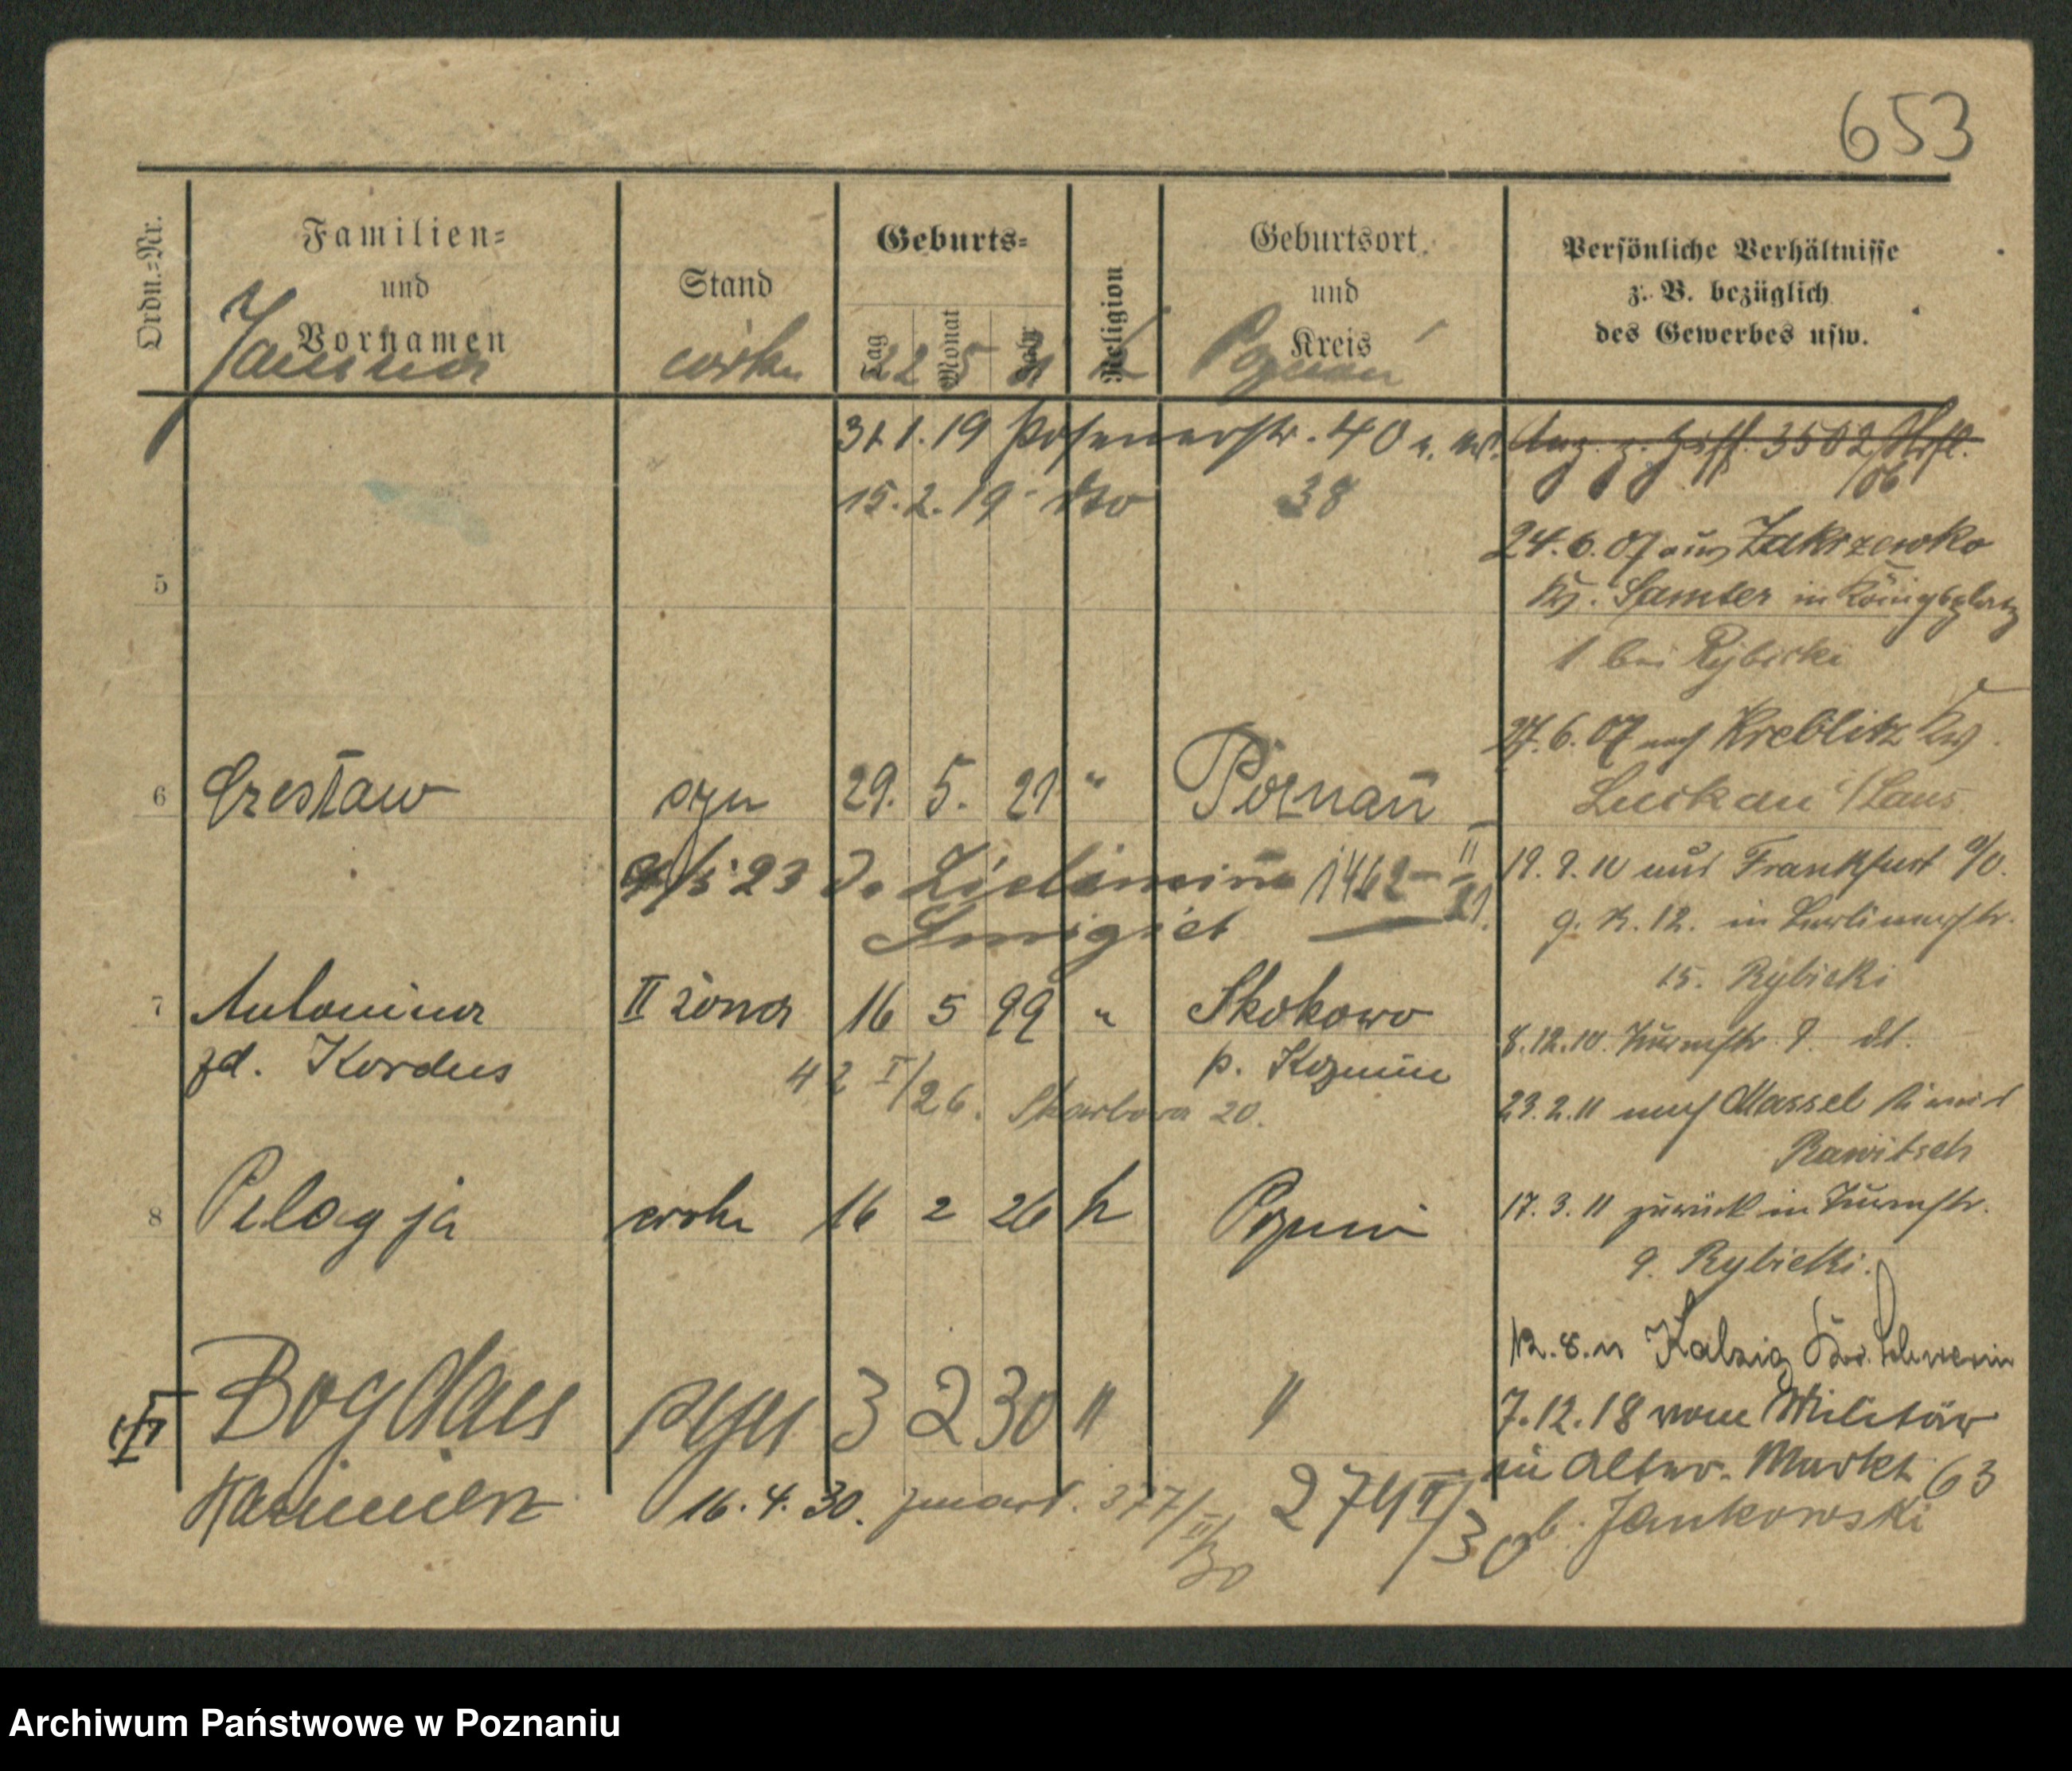 653
Ordn.=Nr.
Familien=
und
Vornamen
Stand
Geburts=
Tag
Monat
Jahr
Religion
Geburtsort
und
Kreis
Persönliche Verhältnisse
z. B. bezüglich
des Gewerbes usw.
Janina córka 22 5 Poznań
31.1.19 Posenerstr. 40
15.2.19 dto 38
3502
24.6.07 aus Zakrzewko
Kr. Samter in Königsplatz
1 bei Rybicki
5
27.6.07 nach Kreblitz Kr.
Luckau /Laus
6 Czesław syn 29. 5. 21 " Poznań
23 do 1462 II
21
Smigiel
19.9.10 aus Frankfurt a/O.
in Berlinerstr.
15. Rybicki
7 Antonina II żona 16 5 99 " Skokowo
zd. Kordus p. Kozmin
42 I/26. Skarbowa 20.
8.12.10 Turmstr 9. dt.
23.2.11 nach Massel
Rawitsch
8 Pelagja córka 16 2 26 k Poznań
17.3.11 zurück in Turmstr.
9. Rybicki.
12.8.11 Kalzig Kr. Schwerin
Bogdan syn 3 2 30 " "
7.12.18 vom Militär
in Alter Markt 63
b. Jankowski
Kazimierz 16.4.30. zmarł. 377/II/30 274 II/30
Archiwum Państwowe w Poznaniu